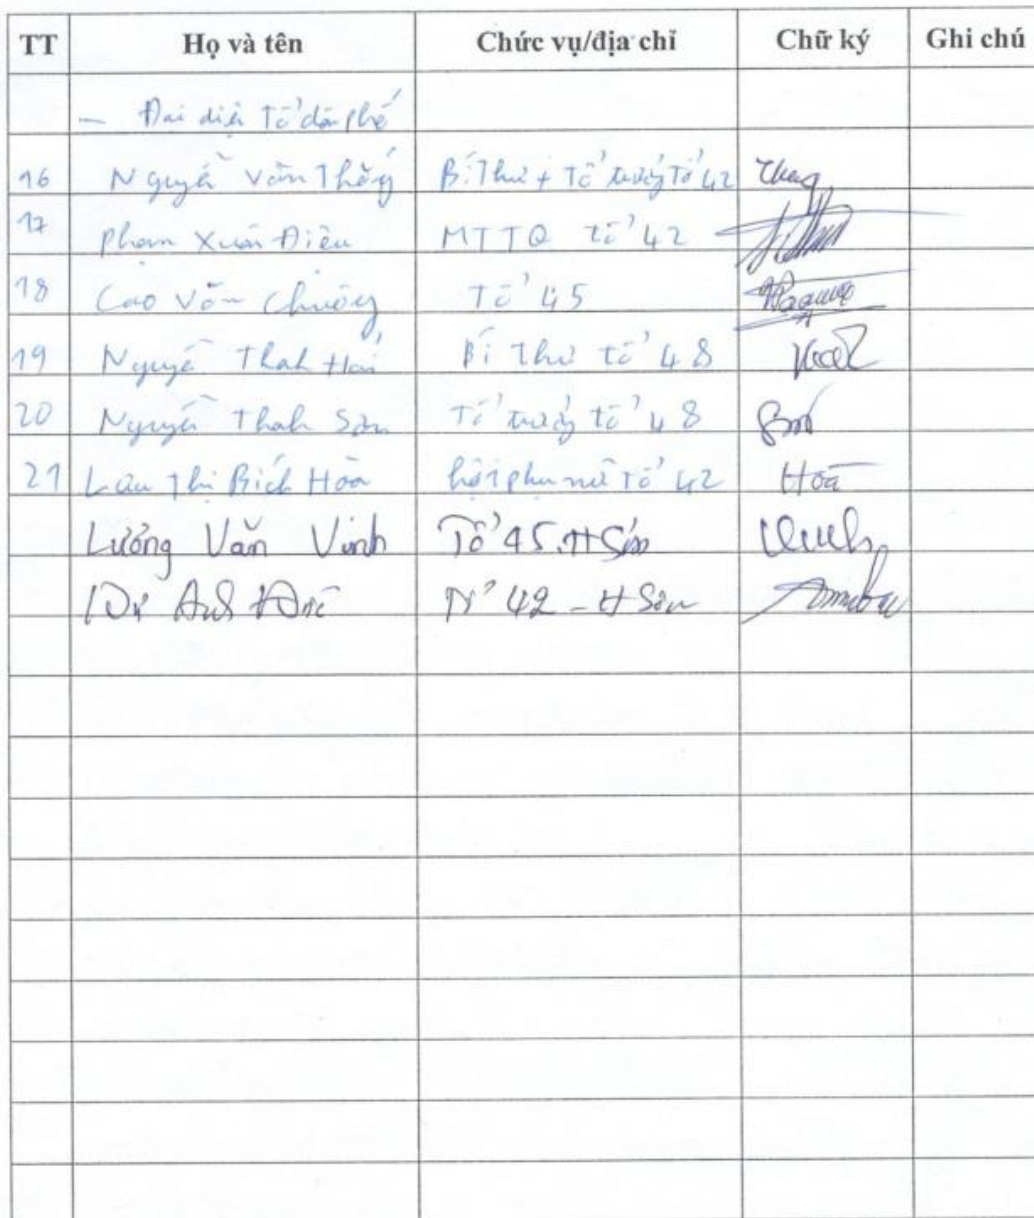 TT Họ và tên Chức vụ/địa chỉ Chữ ký Ghi chú
- Đại diện Tổ dân phố
16 Nguyễn Văn Thắng Bí Thư + Tổ trưởng Tổ 42 Thang
17 Phạm Xuân Điều MTTQ tổ 42
18 Cao Văn Chường Tổ 45
19 Nguyễn Thanh Hải Bí Thư tổ 48
20 Nguyễn Thanh Sơn Tổ trưởng tổ 48
21 Lâu Thị Bích Hòa hội phụ nữ Tổ 42 Hòa
Lường Văn Vinh Tổ 45. H Sơn Vinh
Anh 42 - H Sơn